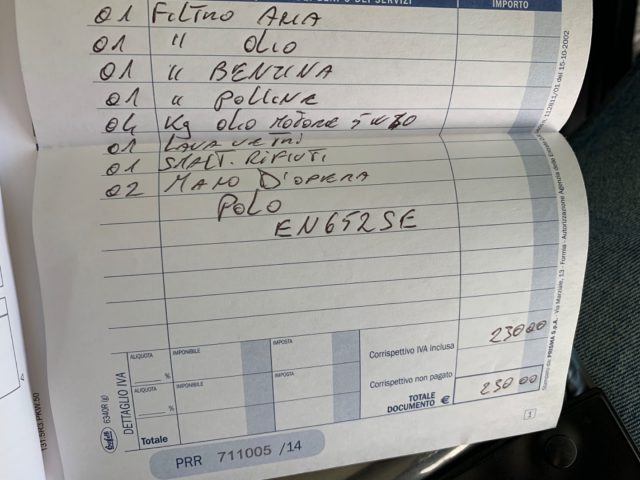 DEI SERVIZI IMPORTO
01 FILTRO ARIA
01 " OLIO
01 " BENZINA
01 " POLLINE
04 Kg OLIO MOTORE 5W30
01 LAVAVETRI
01 SMALT. RIFIUTI
02 MANO D'OPERA
POLO
EN652SE
DETTAGLIO IVA
ALIQUOTA IMPONIBILE IMPOSTA
%
ALIQUOTA IMPONIBILE IMPOSTA
%
Totale
Corrispettivo IVA inclusa 230 00
Corrispettivo non pagato
TOTALE DOCUMENTO € 230 00
PRR 711005 /14
1
6340R
PRISMA S.p.A. - Via Marziale, 13 - Formia - Autorizzazione Agenzia delle Entrate
112811/01 del 15-10-2002